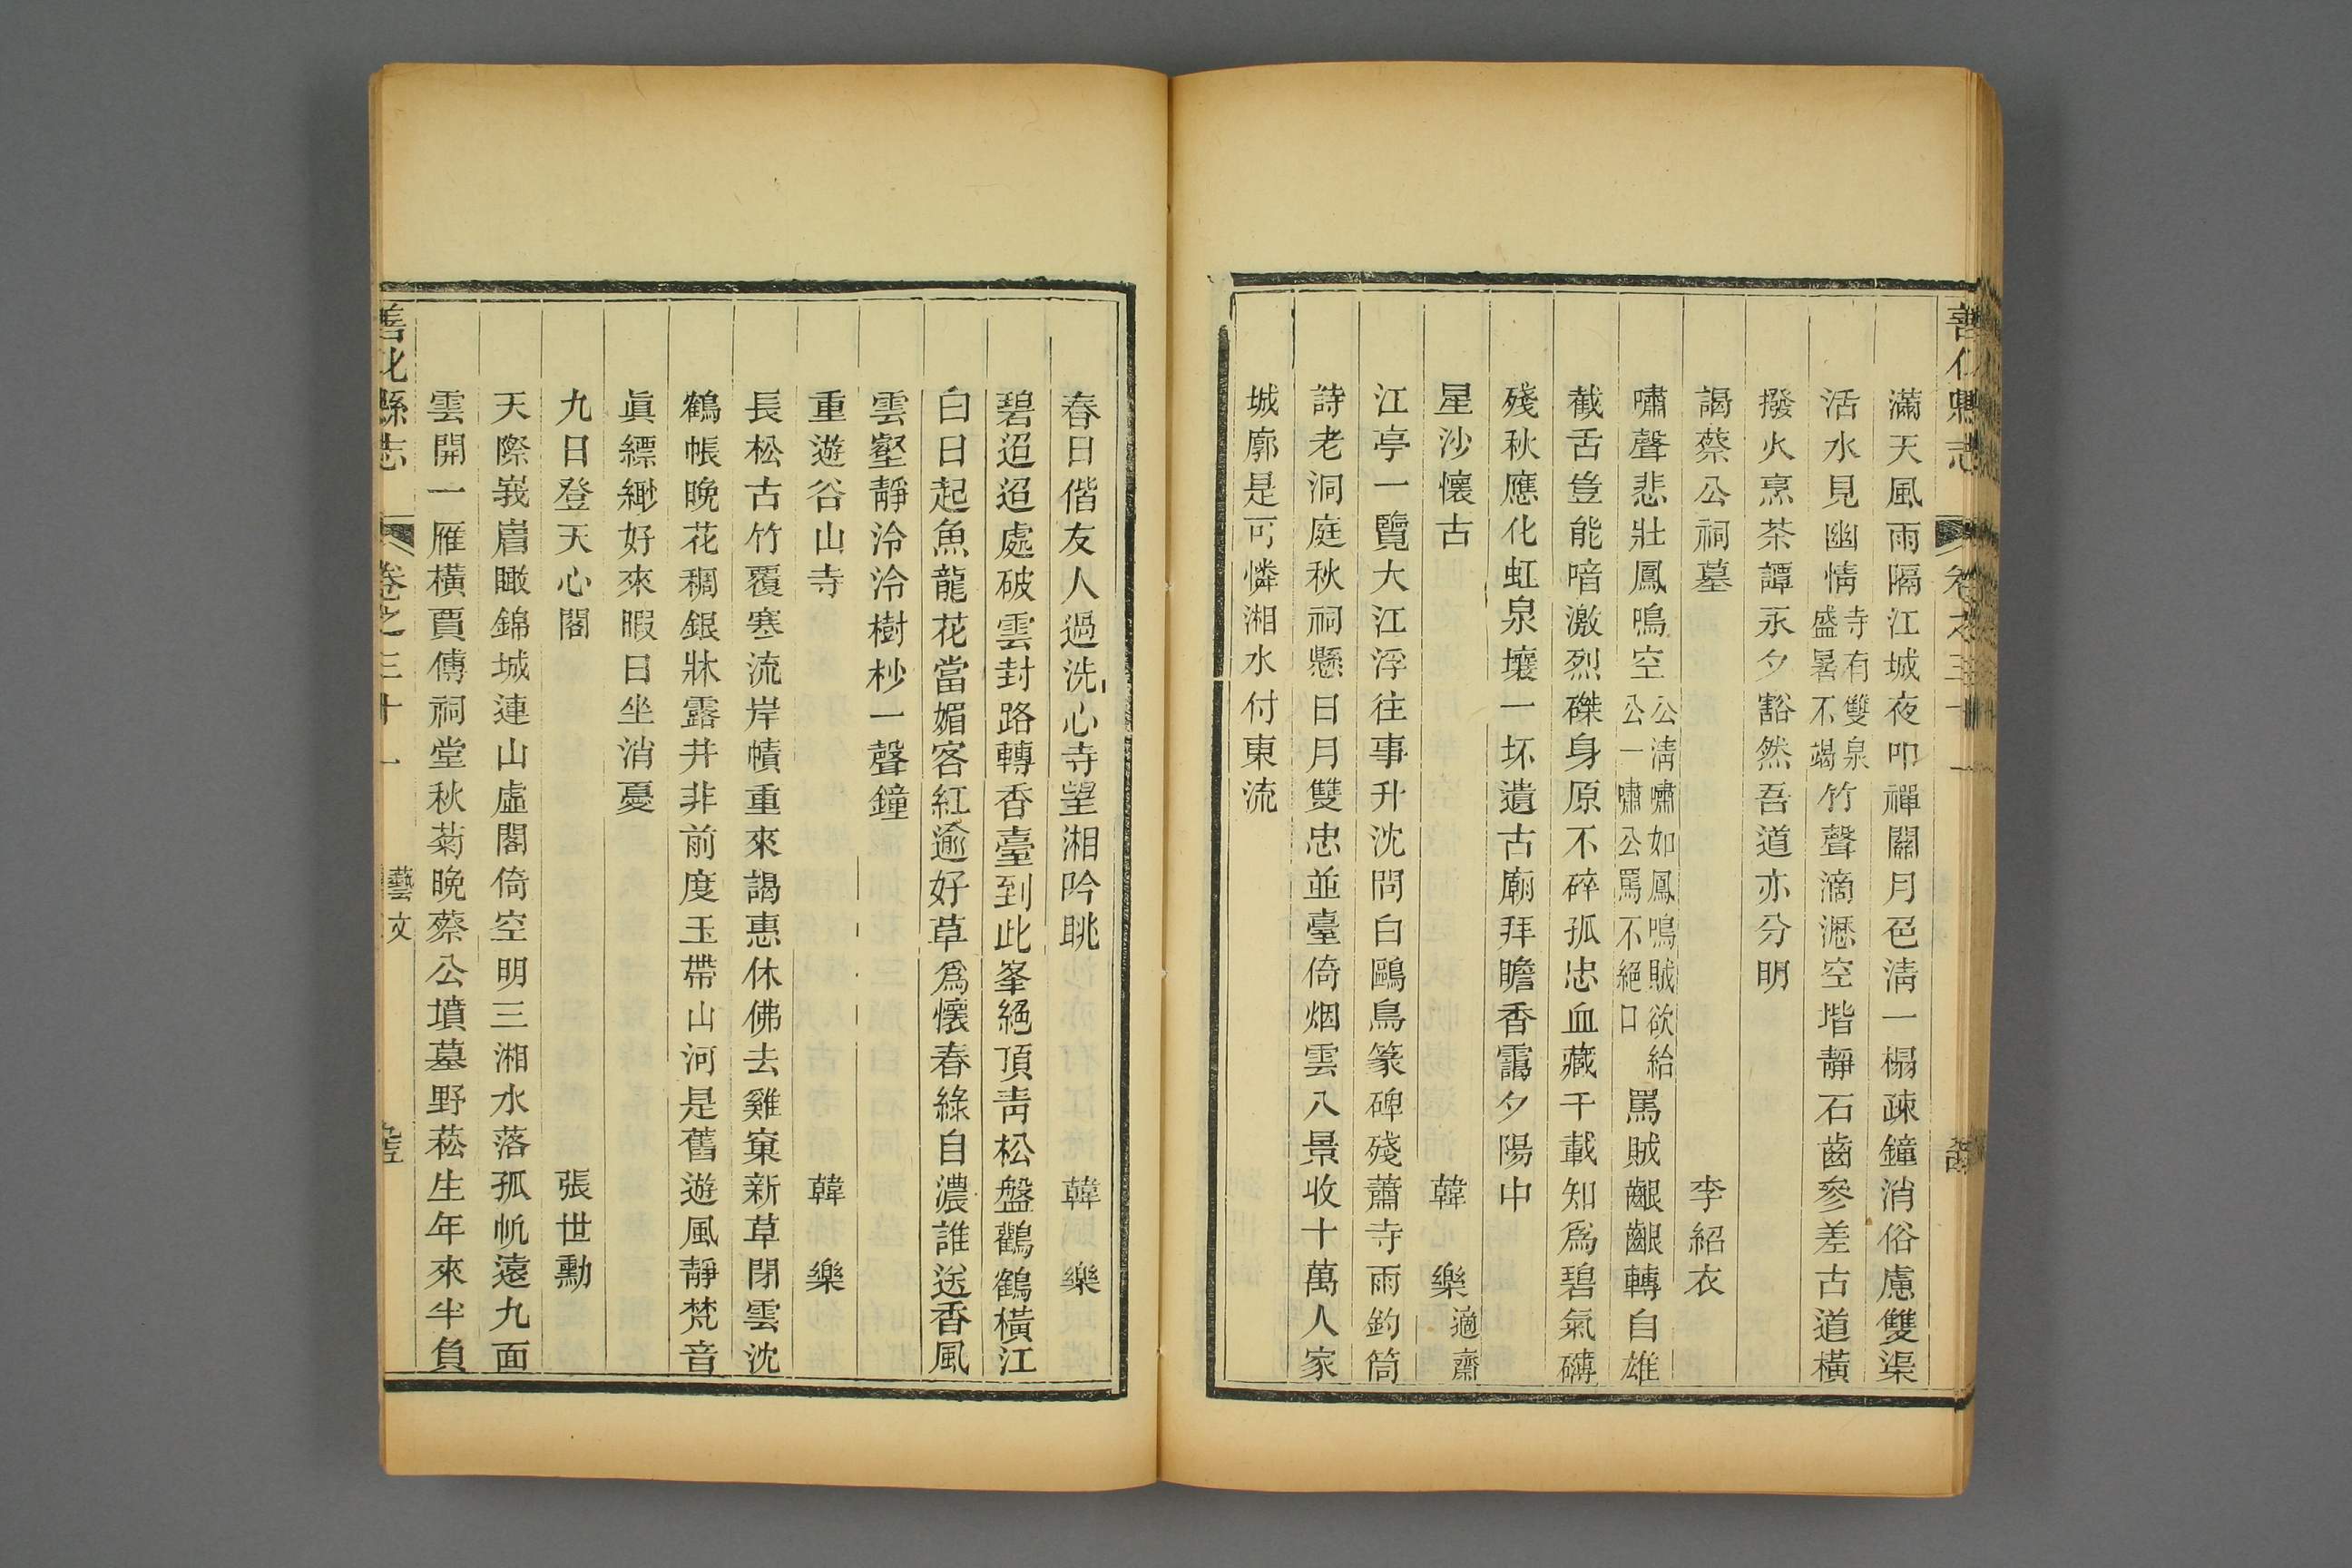 滿天風雨隔江城夜叩禪關月色清一榻疎鐘消俗慮雙渠
活水見幽情寺有雙泉盛暑不竭竹聲滴瀝空堦靜石齒參差古道橫
撥火烹茶譚永夕豁然吾道亦分明
謁蔡公祠墓 李紹衣
嘯聲悲壯鳳鳴空公清嘯如鳳鳴賊欲給公一嘯公罵不絕口罵賊齦齦轉自雄
截舌豈能喑激烈磔身原不碎孤忠血藏千載知爲碧氣礴
殘秋應化虹泉壤一坏遺古廟拜瞻香靄夕陽中
星沙懷古 韓樂適齋
江亭一覽大江浮往事升沈問白鷗鳥篆碑殘蕭寺雨釣筒
詩老洞庭秋祠懸日月雙忠並臺倚烟雲八景收十萬人家
城廓是可憐湘水付東流
春日偕友人過洗心寺望湘吟眺 韓樂
碧迢迢處破雲封路轉香臺到此峯絕頂靑松盤鸛鶴橫江
白日起魚龍花當媚客紅逾好草爲懷春綠自濃誰送香風
雲壑靜泠泠樹杪一聲鐘
重遊谷山寺 韓樂
長松古竹覆寒流岸幘重來謁惠休佛去雞窠新草閉雲沈
鶴帳晚花稠銀牀露井非前度玉帶山河是舊遊風靜梵音
眞縹緲好來暇日坐消憂
九日登天心閣 張世勳
天際峩眉瞰錦城連山虛閣倚空明三湘水落孤帆遠九面
雲開一雁橫賈傅祠堂秋菊晚蔡公墳墓野菘生年來半負
善化縣志 卷之三十一 藝文